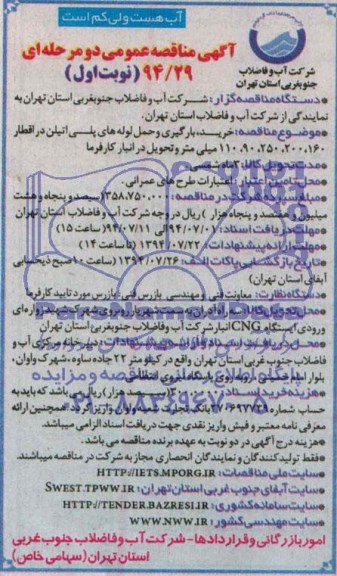 آب هست ولی کم است
آگهی مناقصه عمومی دو مرحله ای
۹۴/۲۹ (نوبت اول)
شرکت آب و فاضلاب
جنوبغربی استان تهران
دستگاه مناقصه گزار: شرکت آب و فاضلاب جنوبغربی استان تهران به
نمایندگی از شرکت آب و فاضلاب استان تهران.
موضوع مناقصه: خرید، بارگیری و حمل لوله های پلی اتیلن در اقطار
۱۱۰،۹۰،۲۵۰،۲۰۰،۱۶۰ میلی متر و تحویل در انبار کارفرما
مدت تحویل کالا: ۳ ماه شمسی
محل تامین اعتبار: اعتبارات طرح های عمرانی.
مبلغ سپرده شرکت در مناقصه: ۳۵۸.۷۵۰.۰۰۰ (سیصد و پنجاه و هشت
میلیون و هفتصد و پنجاه هزار) ریال در وجه شرکت آب و فاضلاب استان تهران
مهلت دریافت اسناد: ۹۴/۰۷/۰۱ الی ۹۴/۰۷/۱۱ (ساعت ۱۵)
مهلت ارائه پیشنهادات: ۱۳۹۴/۰۷/۲۲ (تا ساعت ۱۴)
تاریخ بازگشایی پاکات الف: ۱۳۹۴/۰۷/۲۶ (ساعت ۱۰ صبح ذیحسابی
آبفای استان تهران)
دستگاه نظارت: معاونت فنی و مهندسی بازرس فنی: بازرس مورد تایید کارفرما
محل تحویل کالا: سه راه آدران به سمت شهریار روبروی شهرک
ورودی ایستگاه CNG انبار شرکت آب و فاضلاب جنوبغربی استان تهران
محل دریافت اسناد و ارائه پیشنهادات: دبیرخانه مرکزی آب و
فاضلاب جنوب غربی استان تهران واقع در کیلومتر ۲۲ جاده ساوه، شهرک واوان،
بلوار امام خمینی، روبه روی پاسگاه نیروی انتظامی
هزینه خرید اسناد: هزار) ریال می باشد که باید به
حساب شماره بانک تجارت شعبه واوان واریز گردد. همچنین ارائه
معرفی نامه معتبر و فیش واریز نقدی جهت دریافت اسناد الزامی میباشد.
هزینه درج آگهی در دو نوبت به عهده برنده مناقصه می باشد.
فقط تولید کنندگان و نمایندگان انحصاری مجاز به شرکت در مناقصه میباشند.
سایت ملی مناقصات: HTTP://IETS.MPORG.IR
سایت آبفای جنوب غربی استان تهران: SWEST.TPWW.IR
سایت سامانه کشوری: HTTP://TENDER.BAZRESI.IR
سایت مهندسی کشور: WWW.NWW.IR
امور بازرگانی و قراردادها- شرکت آب و فاضلاب جنوب غربی
استان تهران (سهامی خاص)